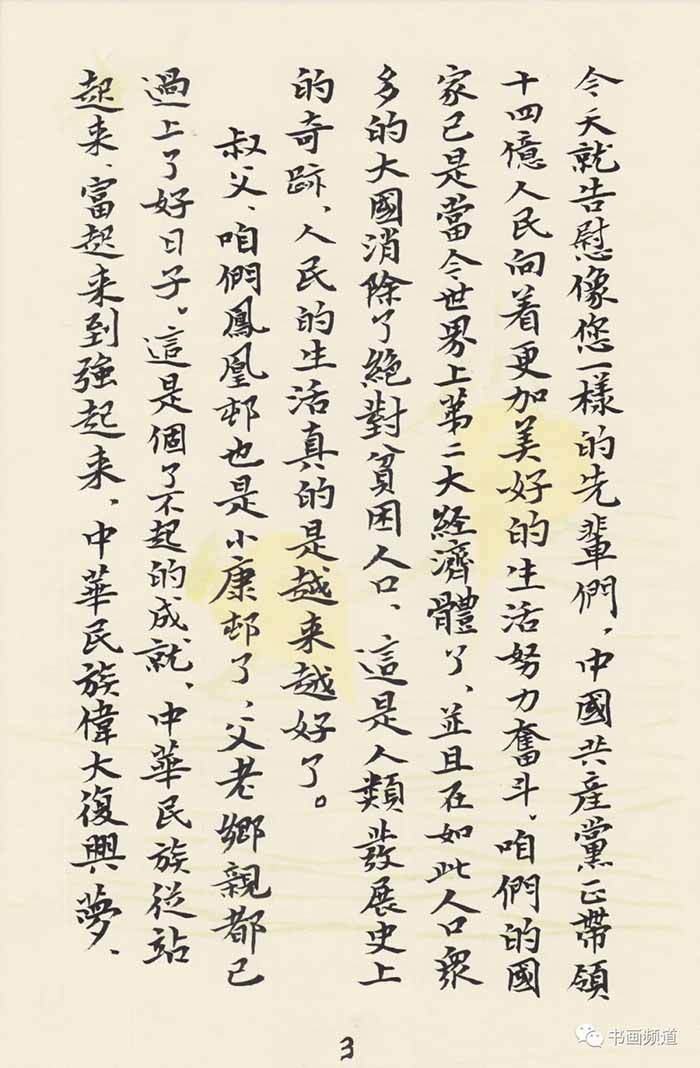 今天就告慰像您一樣的先輩們，中國共産黨正帶領
十四億人民向着更加美好的生活努力奮斗、咱們的國
家已是當今世界上第二大經濟體了、並且在如此人口衆
多的大國消除了絕對貧困人口、這是人類發展史上
的奇跡、人民的生活真的是越来越好了。
叔父、咱們鳳凰邨也是小康邨了、父老鄉親都已
過上了好日子。這是個了不起的成就、中華民族從站
起来、富起来到強起来、中華民族偉大復興夢、
3
书画频道